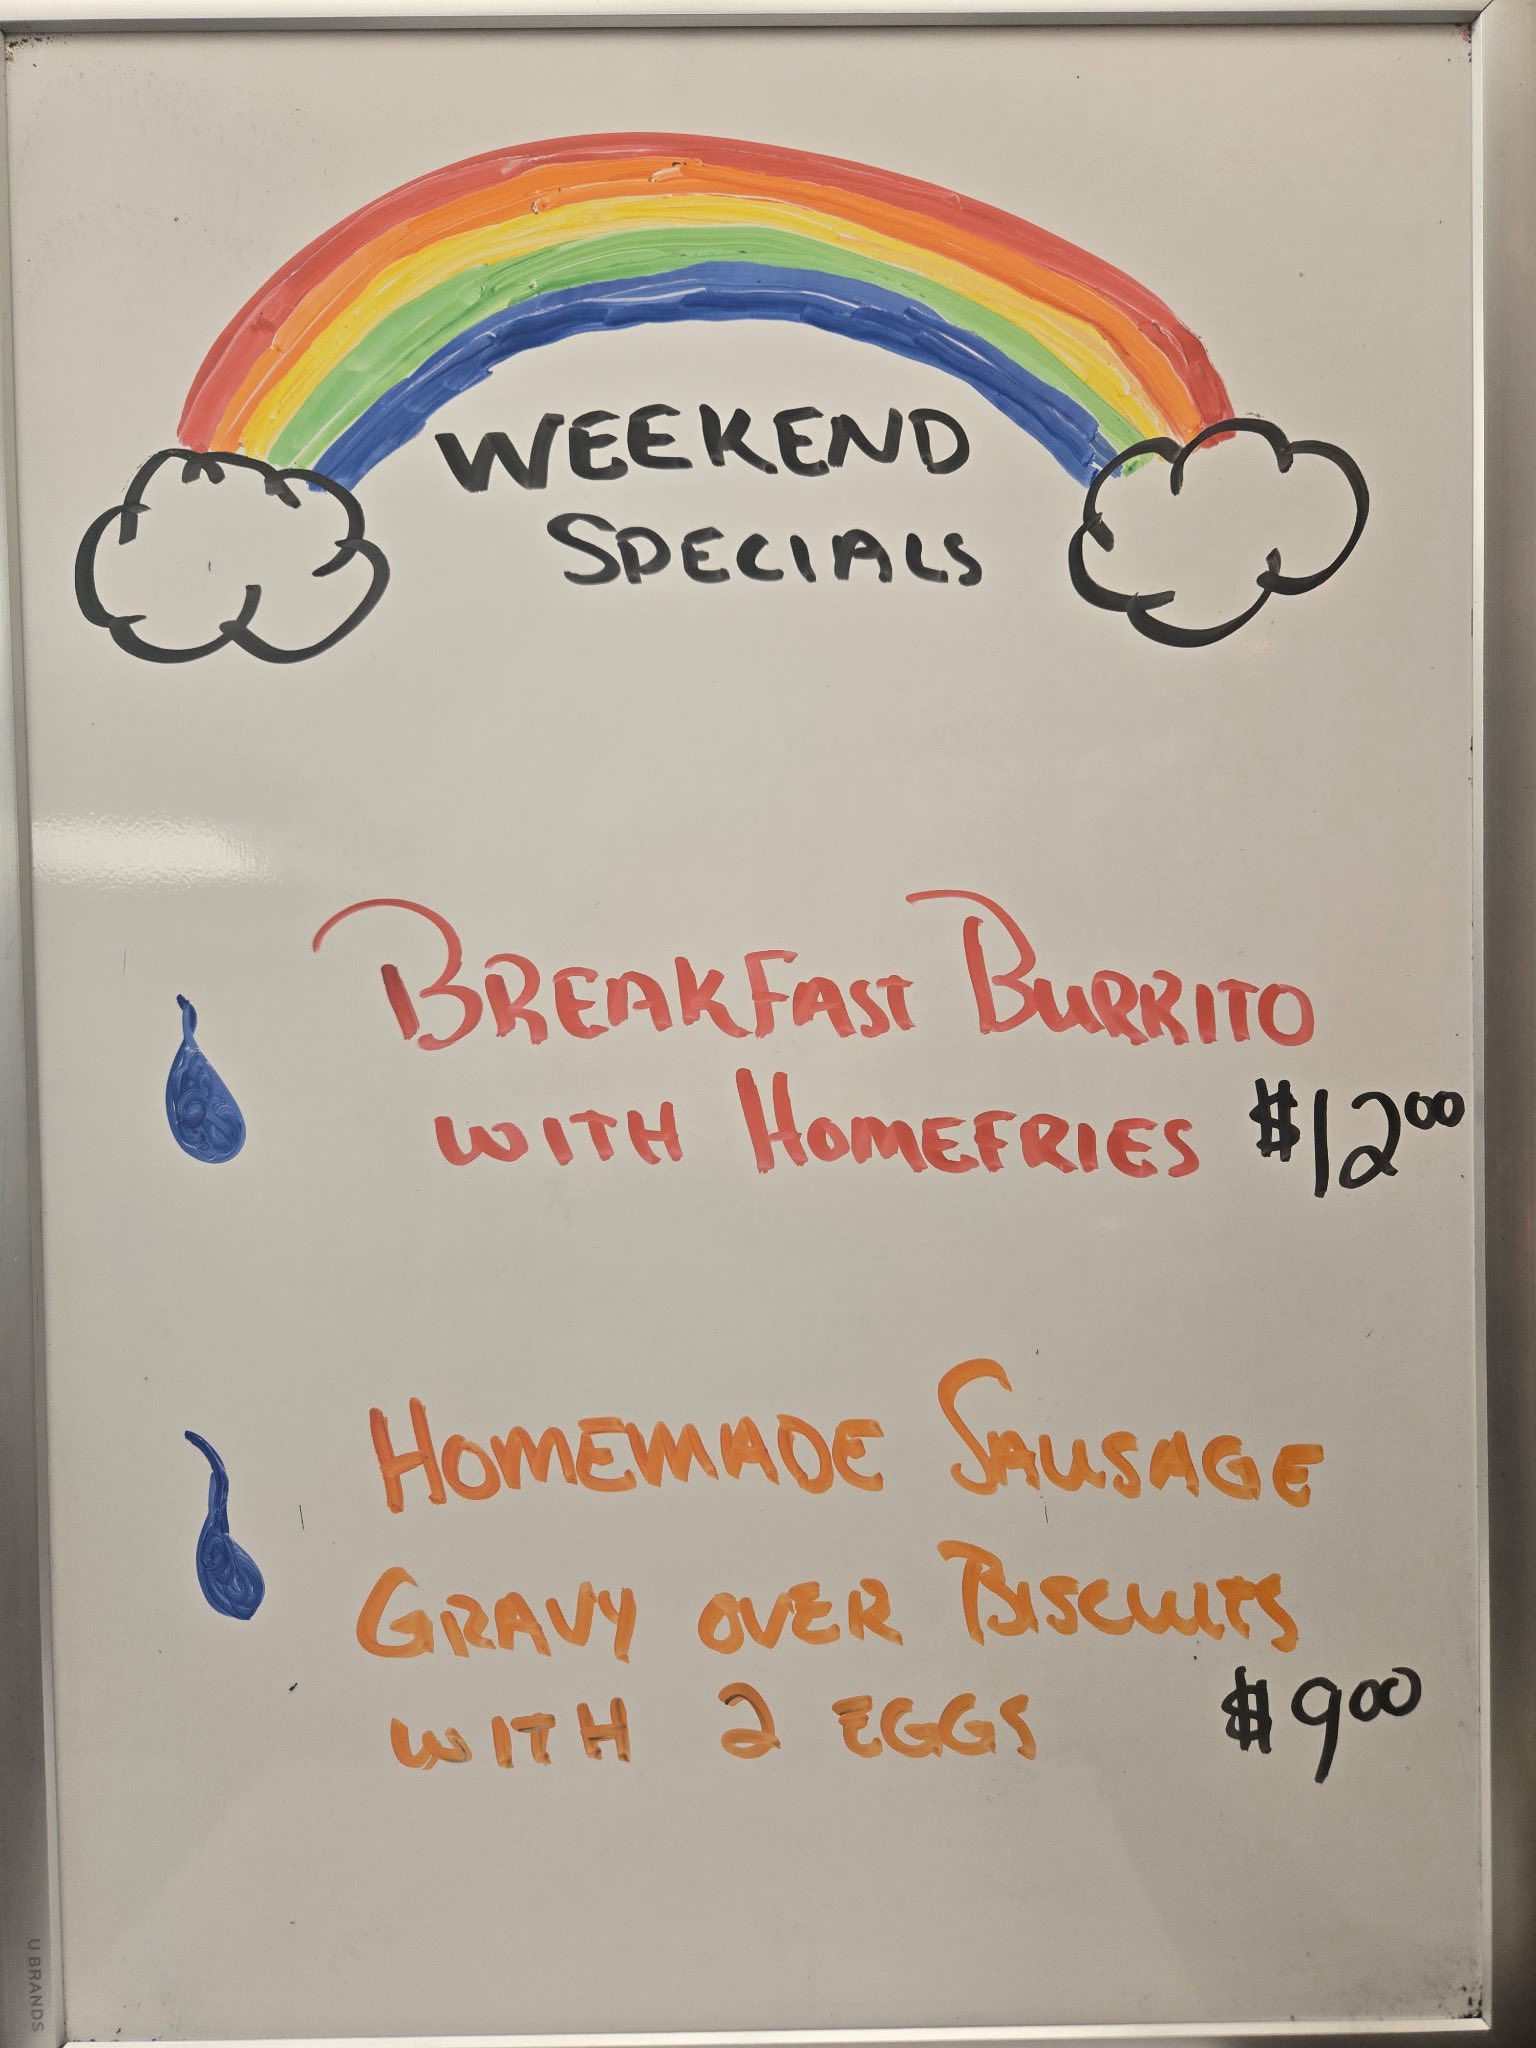 WEEKEND
SPECIALS
BREAKFAST BURRITO
WITH HOMEFRIES $1200
HOMEMADE SAUSAGE
GRAVY OVER BISCUITS
WITH 2 EGGS $900
U BRANDS